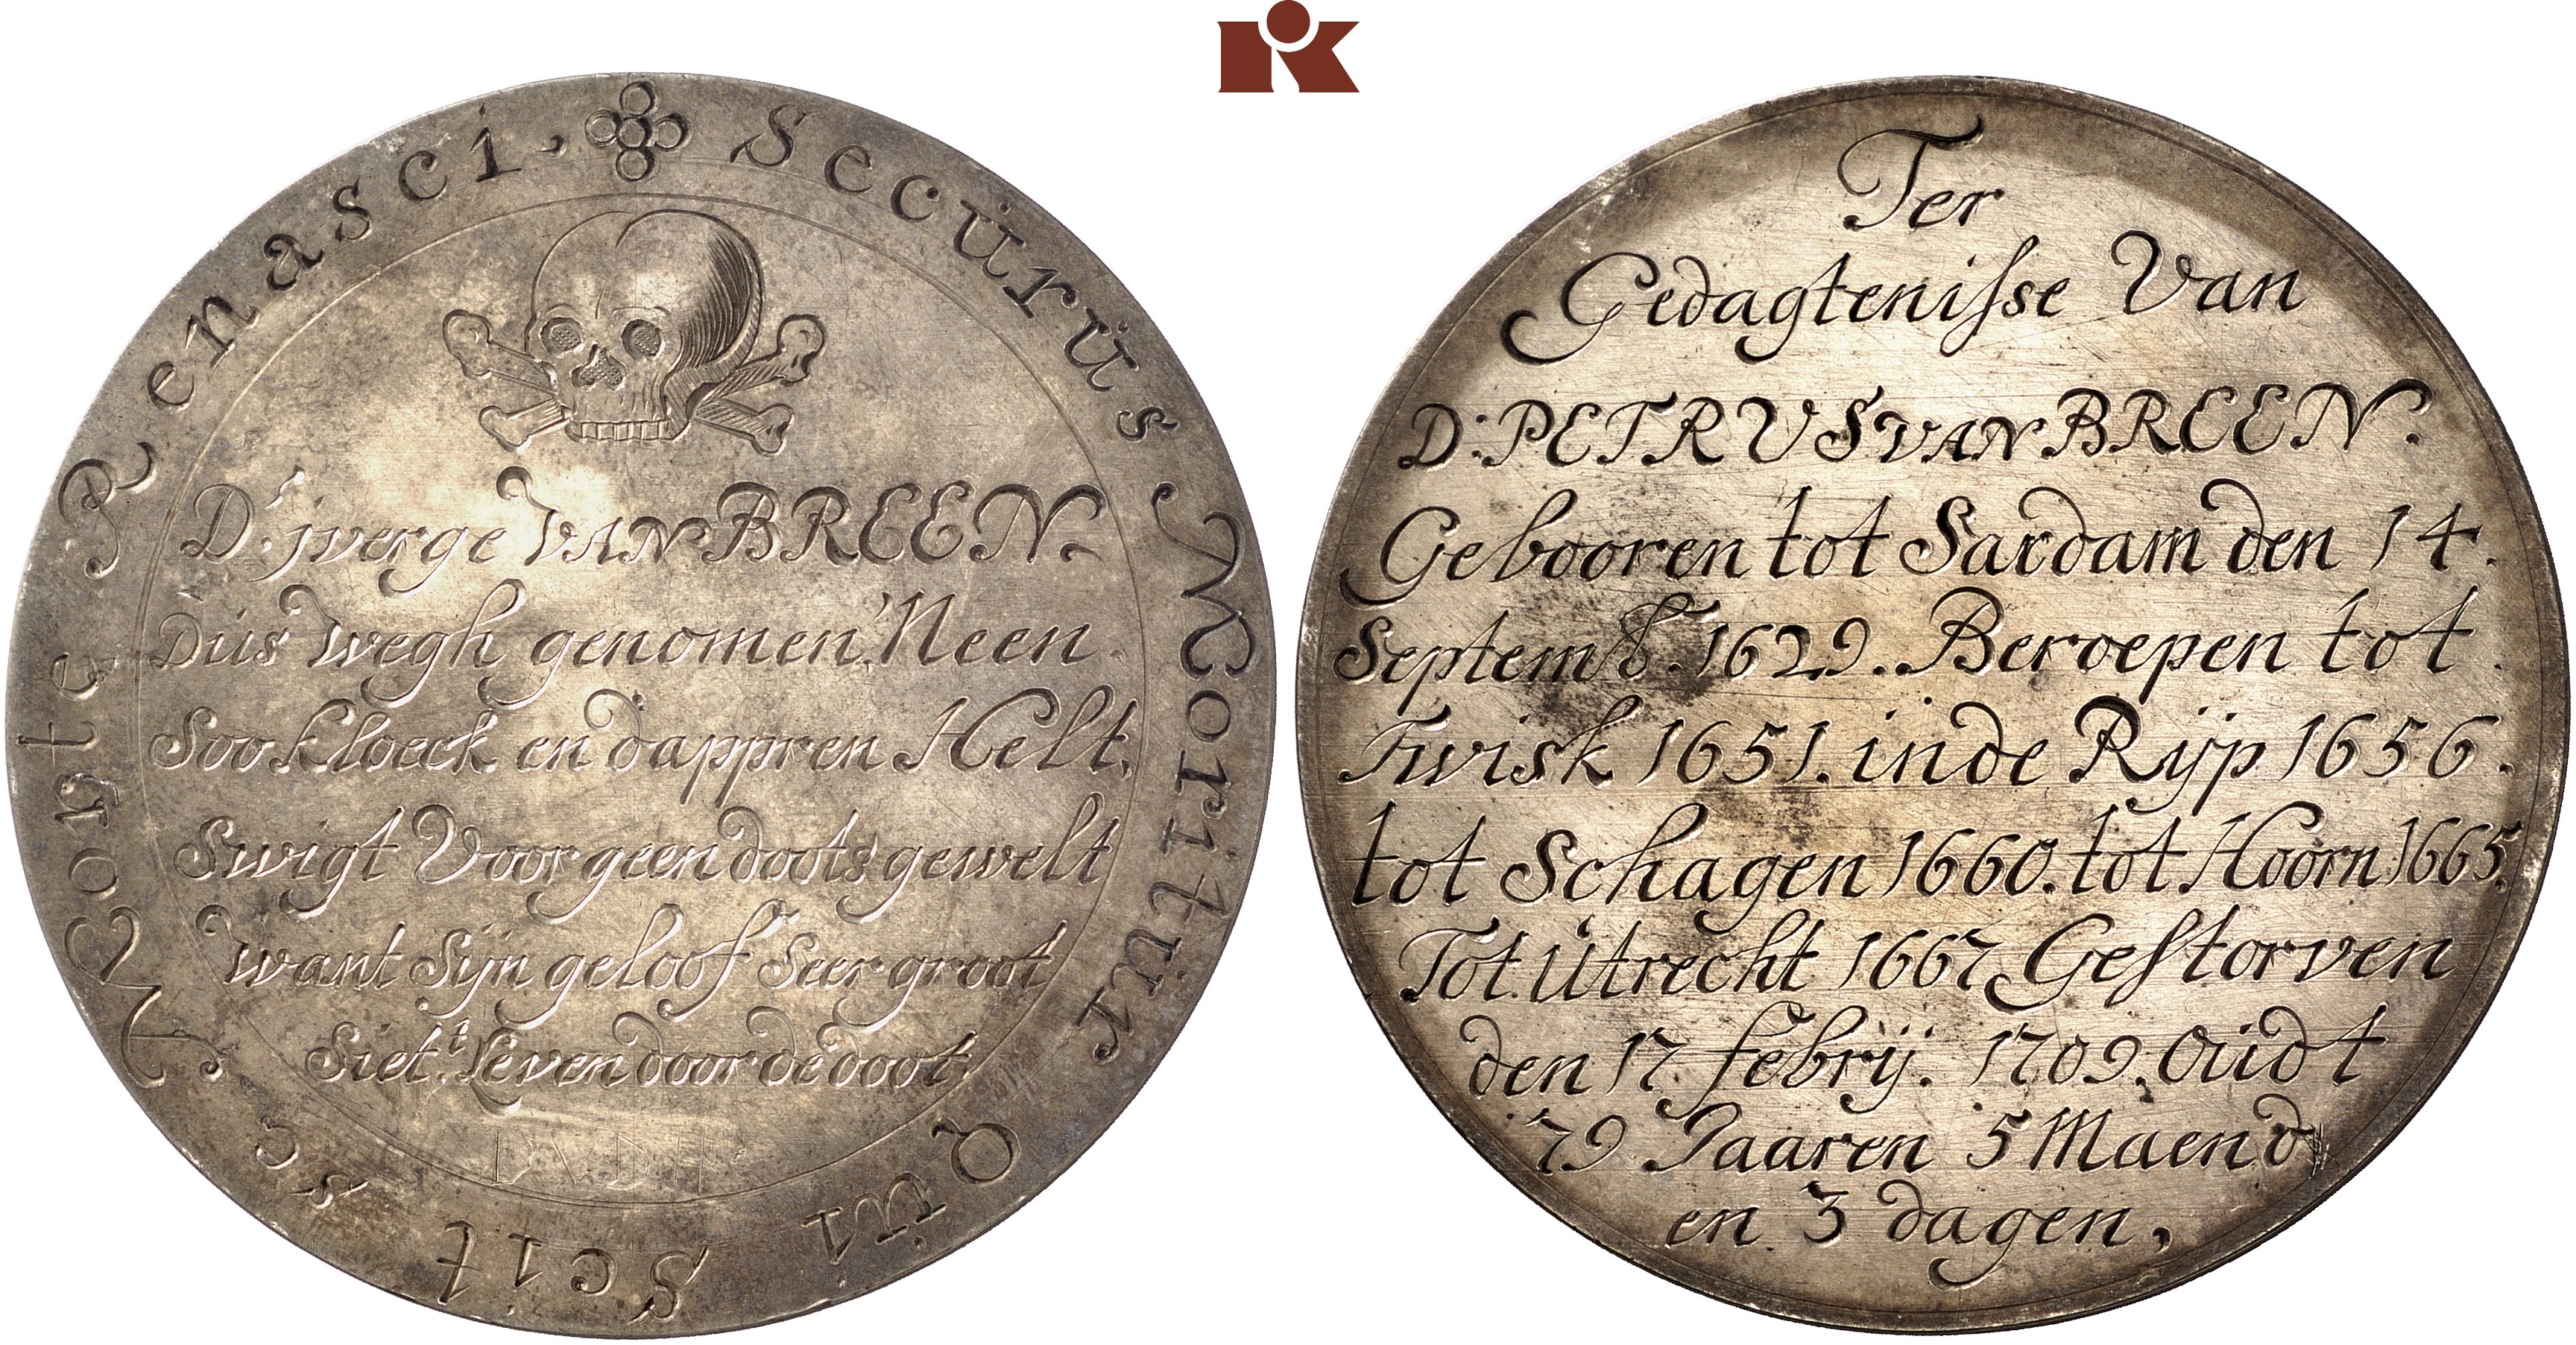 Securus Moritur Qui Scit se Morte Renasci.
D.' jverge VAN BREEN.
Dus wegh genomen, Neen.
Soo kloeck en dappren Helt,
Swigt Voor geen doots gewelt
Want Sijn geloof Seer groot
Siet. t Leven door de doot,
DVDH
Ter
Gedagtenisse Van
D: PETRUS VAN BREEN.
Gebooren tot Sardam den 14.
Septemb. 1629. Beroepen tot
Twisk 1651. in de Rijp 1656.
tot Schagen 1660. tot Hoorn 1665.
Tot Utrecht 1667 Gestorven
den 17 febrij. 1709. Oudt
79 Jaaren 5 Maend
en 3 dagen,